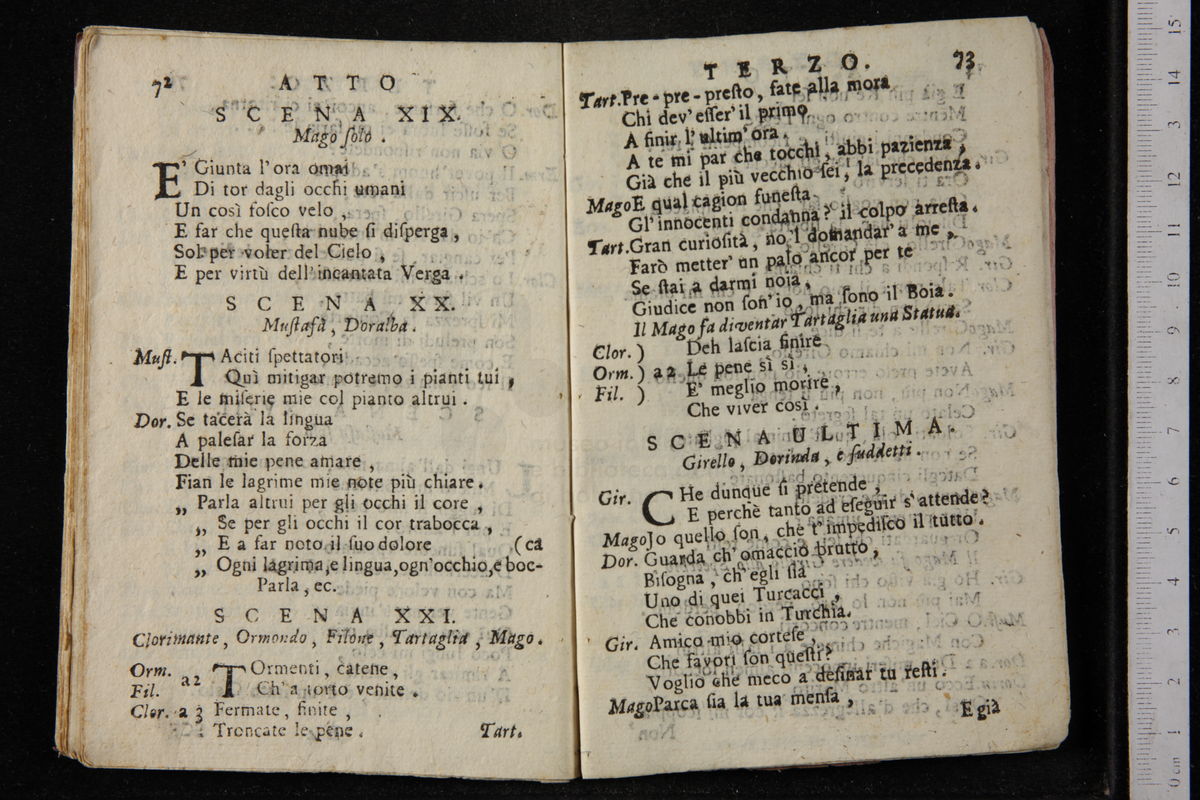 72 ATTO
SCENA XIX.
Mago ſolo.
E' Giunta l'ora omai
Di tor dagli occhi umani
Un così foſco velo,
E far che queſta nube ſi diſperga,
Sol per voler del Cielo,
E per virtù dell'incantata Verga.
SCENA XX.
Muſtafà, Doralba.
Muſt. TAciti ſpettatori
Quì mitigar potremo i pianti tui,
E le miſerie mie col pianto altrui.
Dor. Se tacerà la lingua
A paleſar la forza
Delle mie pene amare,
Fian le lagrime mie note più chiare.
„ Parla altrui per gli occhi il core,
„ Se per gli occhi il cor trabocca,
„ E a far noto il ſuo dolore (ca
„ Ogni lagrima,e lingua,ogn'occhio,e boc-
Parla, ec.
SCENA XXI.
Clorimante, Ormondo, Filone, Tartaglia, Mago.
Orm. a2 TOrmenti, catene,
Fil. Ch'a torto venite.
Clor. a 3 Fermate, finite,
Troncate le pene.
Tart.
TERZO. 73
Tart. Pre-pre-preſto, fate alla mora
Chi dev'eſſer'il primo
A finir l'ultim'ora.
A te mi par che tocchi, abbi pazienza,
Già che il più vecchio ſei, la precedenza.
Mago E qual cagion funeſta
Gl'innocenti condanna? il colpo arreſta.
Tart. Gran curioſità, no'l domandar'a me,
Farò metter'un palo ancor per te
Se ſtai a darmi noia.
Giudice non ſon'io, ma ſono il Boia.
Il Mago fa diventar Tartaglia una Statua.
Clor. ) Deh laſcia finire
Orm. ) a2 Le pene sì sì,
Fil. ) E' meglio morire,
Che viver così.
SCENA ULTIMA.
Girello, Dorinda, e ſuddetti.
Gir. CHe dunque ſi pretende,
E perchè tanto ad eſeguir s'attende?
Mago Jo quello ſon, che t'impediſco il tutto.
Dor. Guarda ch'omaccio brutto,
Biſogna, ch'egli ſia
Uno di quei Turcacci,
Che conobbi in Turchia.
Gir. Amico mio corteſe,
Che favori ſon queſti?
Voglio che meco a deſinar tu reſti.
Mago Parca ſia la tua menſa,
E già